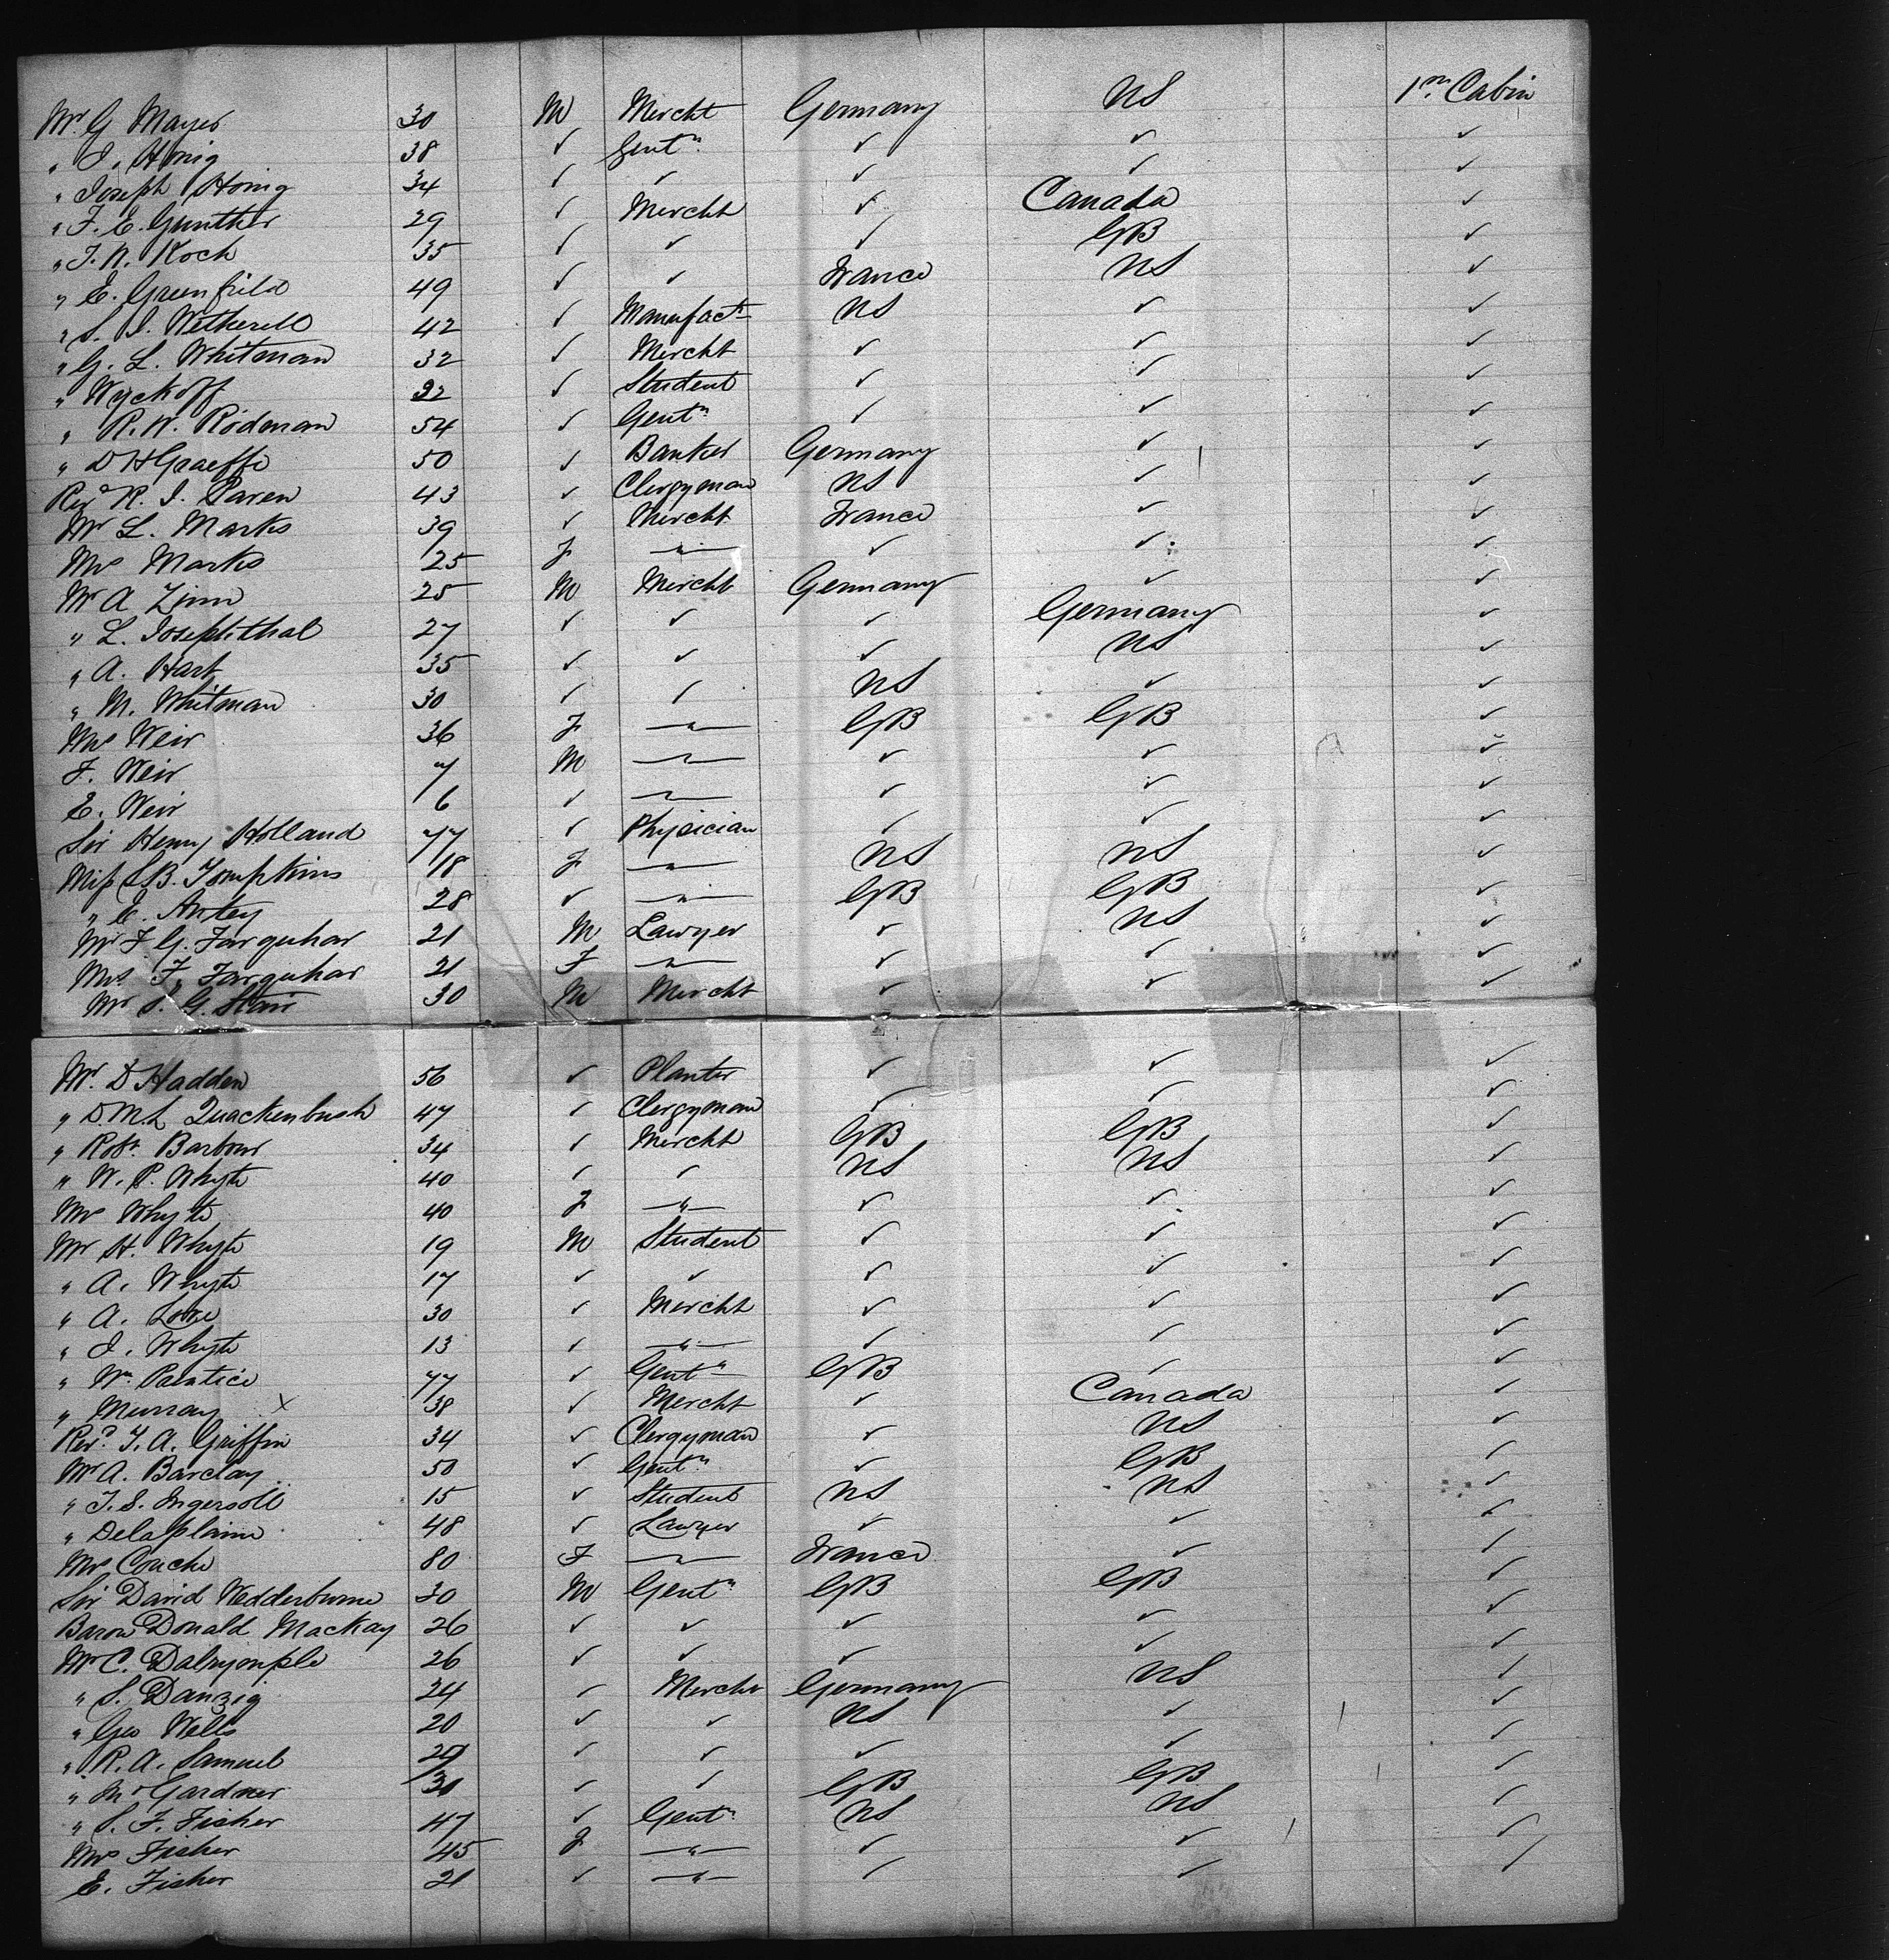 Mr G Mayer 30 M Mercht Germany US 1st Cabin
" I. Honig 38 ✓ Gentn ✓ ✓ ✓
" Joseph Honig 34 ✓ ✓ ✓ ✓ ✓
" F. E. Gunther 29 ✓ Mercht ✓ Canada ✓
" J. N. Koch 35 ✓ ✓ ✓ GB ✓
" E. Greenfield 49 ✓ ✓ France US ✓
" S. I. Wetherell 42 ✓ Manufactr US ✓ ✓
" G. L. Whitman 32 ✓ Mercht ✓ ✓ ✓
" Wyckoff 32 ✓ Student ✓ ✓ ✓
" R. W. Rodman 54 ✓ Gentn ✓ ✓ ✓
" D H Graeffe 50 ✓ Banker Germany ✓ ✓
Revd R. I. Paren 43 ✓ Clergyman US ✓ ✓
Mr L. Marks 39 ✓ Mercht France ✓ ✓
Mrs Marks 25 F — " — ✓ ✓ ✓
Mr A Zinn 25 M Mercht Germany ✓ ✓
" L. Josephthal 27 ✓ ✓ ✓ Germany ✓
" A. Hart 35 ✓ ✓ ✓ US ✓
" M. Whitman 30 ✓ ✓ US ✓ ✓
Mrs Weir 36 F — " — GB GB ✓
F. Weir 7 M — " — ✓ ✓ ✓
E. Weir 6 ✓ — " — ✓ ✓ ✓
Sir Henry Holland 77 ✓ Physician ✓ ✓ ✓
Miss S.B. Tompkins 18 F — " — US US ✓
" E. Antey 28 ✓ — " — GB GB ✓
Mr F G. Farquhar 21 M Lawyer ✓ US ✓
Mrs F. Farquhar 21 F — " — ✓ ✓ ✓
Mr S. G. Starr 30 M Mercht ✓ ✓ ✓
Mr. D Hadden 56 ✓ Planter ✓ ✓ ✓
" D. M. L Quackenbush 47 ✓ Clergyman ✓ ✓ ✓
" Robt. Barbour 34 ✓ Mercht GB GB ✓
" W. P. Whyte 40 ✓ ✓ US US ✓
Mrs Whyte 40 F — " — ✓ ✓ ✓
Mr H. Whyte 19 M Student ✓ ✓ ✓
" A. Whyte 17 ✓ ✓ ✓ ✓ ✓
" A. Lowe 30 ✓ Mercht ✓ ✓ ✓
" J. Whyte 13 ✓ — " — ✓ ✓ ✓
" Wm. Prentice 77 ✓ Gentn GB ✓ ✓
" Murray x 38 ✓ Mercht ✓ Canada ✓
Revd. T. A. Griffin 34 ✓ Clergyman ✓ US ✓
Mr A. Barclay 50 ✓ Gentn ✓ GB ✓
" T. S. Ingersoll 15 ✓ Student US US ✓
" Delaplaine 48 ✓ Lawyer ✓ ✓ ✓
Mrs Couche 80 F — " — France ✓ ✓
Sir David Wedderburne 30 M Gentn GB GB ✓
Baron Donald Mackay 26 ✓ ✓ ✓ ✓ ✓
Mr C. Dalrymple 26 ✓ ✓ ✓ ✓ ✓
" S. Danzig 24 ✓ Mercht Germany US ✓
" Geo Wells 20 ✓ ✓ US ✓ ✓
" R. A. Samuel ✓ ✓ ✓ ✓ ✓
" M Gardner 30 ✓ ✓ GB GB ✓
" S. F. Fisher 47 ✓ Gentn US US ✓
Mrs Fisher 45 F — " — ✓ ✓ ✓
E. Fisher 21 ✓ — " — ✓ ✓ ✓